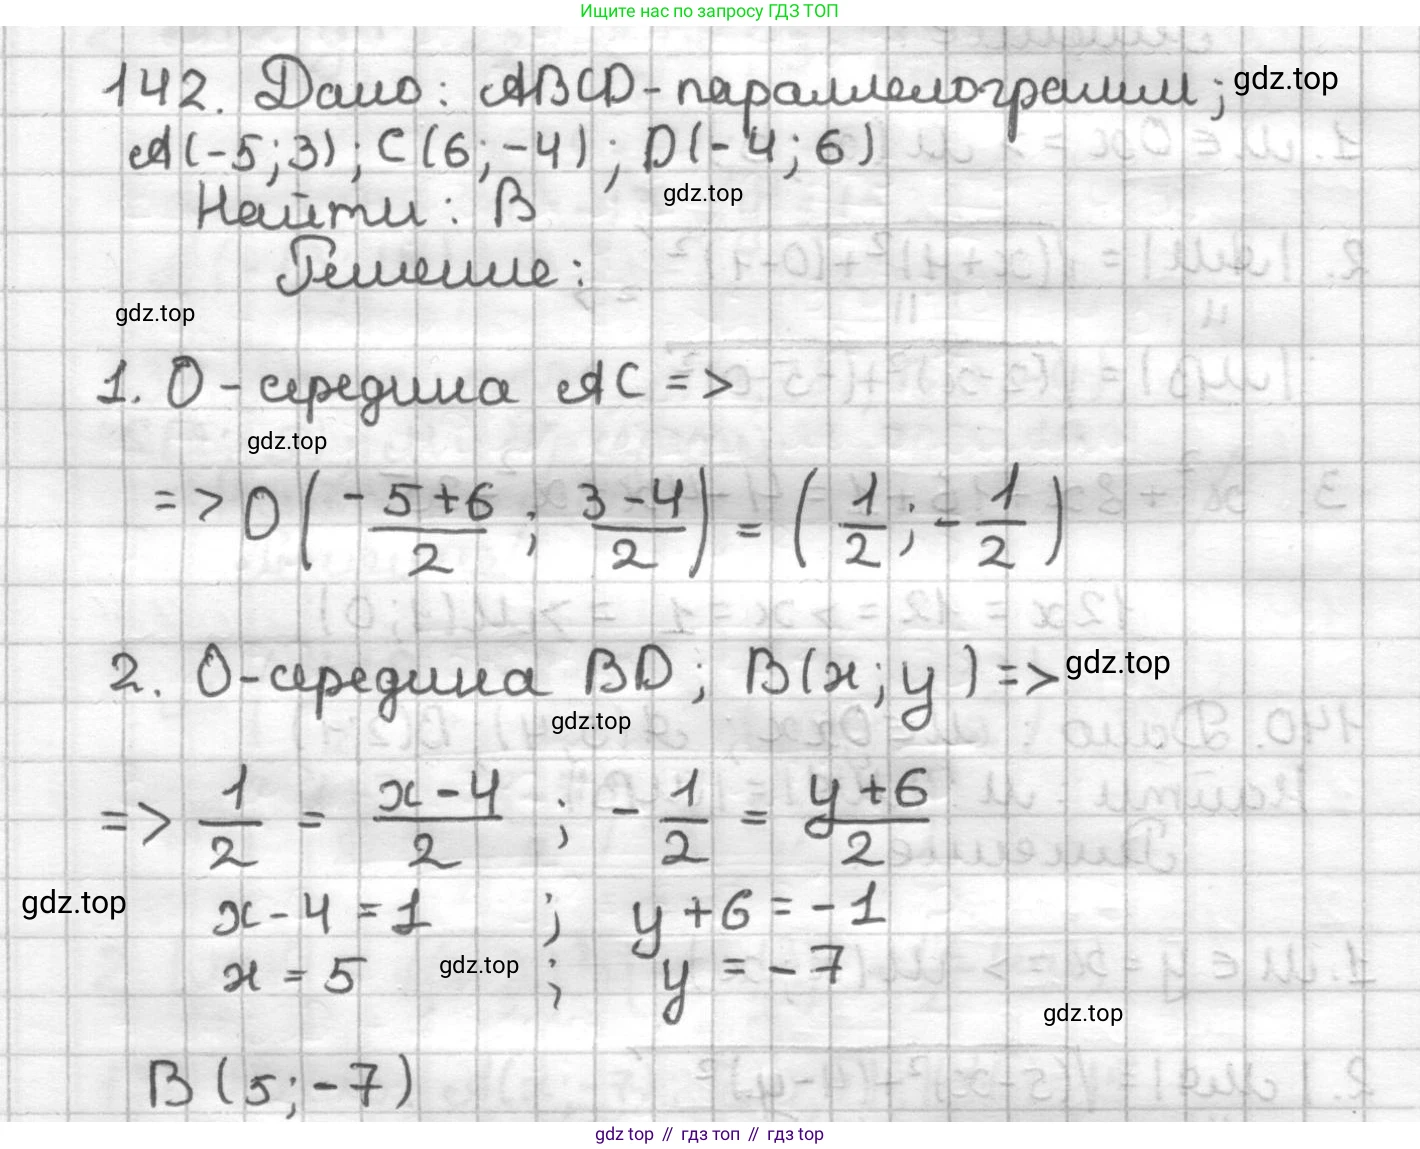 Ищите нас по запросу ГДЗ ТОП
142. Дано: ABCD - параллелограмм; gdz.top
A(-5;3); C(6;-4); D(-4;6)
gdz.top
Найти: B
Решение:
gdz.top
1. O - середина AC =>
gdz.top
=> O(-5+6/2; 3-4/2) = (1/2; -1/2)
2. O - середина BD; B(x;y) => gdz.top
gdz.top
=> 1/2 = x-4/2; -1/2 = y+6/2
gdz.top x-4=1; y+6=-1
x=5; y=-7
gdz.top
gdz.top
B(5;-7)
gdz top // гдз топ // гдз top